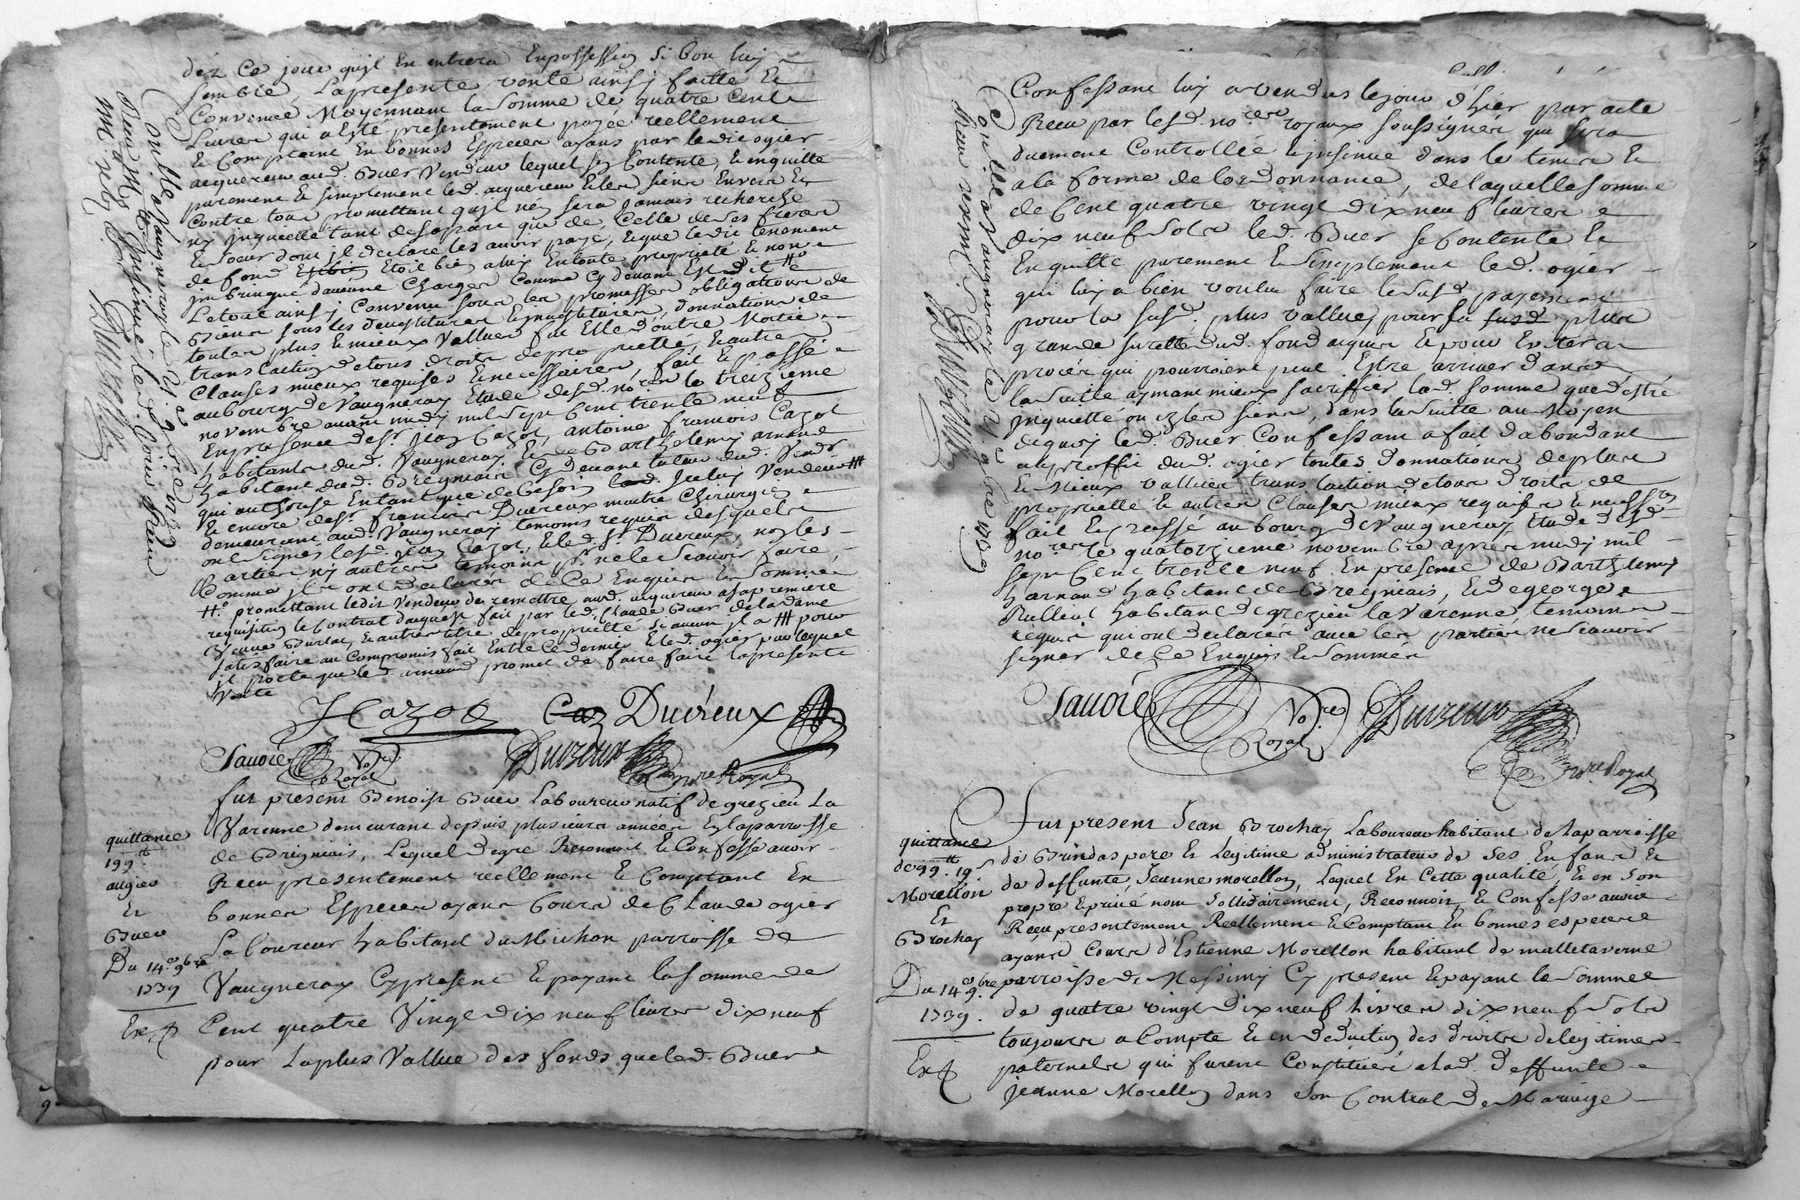 dez Ce jour qu'jl En entrera Enpossession Si bon luy
semble, Lapresente vente ainsy faitte Et
Convenüe Moyennant la Somme de quatre Cents
Livres qui a Esté presentement payée reellement
Et Comptant En bonnes Especes ayans par ledit ogier
acquereur aud. Buer Vendeur lequel s'en Contente Et enquitte
purement Et simplement led. acquereur Et les siens Envers Et
Contre tous promettant qu'jl n'en sera jamais recherché
ny jnquietté tant desapart que de Celle deses freres
Et soeur dont jl declare les avoir payé, Et que ledit tenement
de fond Est bien a luy Entoute proprieté Et non
jmbringué daucune Charges Comme Cy devant Est dit
Letout ainsy Convenu sous les promesses obligations de
Biens sous les Constitutions donnations de
toutes plus Et mieux Vallues fut Elle d'outre Moitié
translation detous droits depropriette, Et autres
Clauses mieux requises Et necessaires, fait Et passé
au bourg de Vaugneray Etude desd. nores le treizieme
novembre avant midy mil sept Cent trente neuf
En presence des. Jean Cazot, antoine francois Cazot
habitants dud. Vaugneray Et de Barthelemy arnaud
habitant dud. Brignais Cy devant tuteur dud. Vendr
qui authorise Entant que de besoin led. Vendeur
Et encore des. francois Ducreux maitre Chirurgien
demeurant aud. Vaugneray temoins requis desquels
ont signés led. s. Jean Cazot, Et led. s. Ducreux, non les
parties ny autres temoins p. nele Scavoir faire,
Comme jls ont declarés de Ce Enquis Et Sommés
promettant ledit Vendeur de remettre aud. acquereur asapremiere
requisition le Contrat dacquest fait par led. Claude Buer deladame
Veuve Burlat, Et autres titres depropriette Si aucun jl a pour
satisfaire au Compromis fait Entre Ce dernier Et led. ogier par lequel
jl porte que led. arnaud promet de faire faire lapresente
Vente
JCazot Caz Ducreux
Savoré Nore Royal Ducreux nore Royal
Controllé a Vaugneray le
quittance
199 tt
augier
Et
Buer
Du 14e 9bre
1739
Ex
Fut present Benoist Buer Laboureur natif de grezieu La
Varenne demeurant depuis plusieurs années En laparroisse
de Brignais, Lequel degré Reconnoit Et Confesse avoir
Receu presentement reellement Et Comptant En
bonnes Especes ayans Cours de Claude ogier
Laboureur habitant du Michon parroisse de
Vaugneray Cy present Et payant la Somme de
Cent quatre Vingt dix neuf livres dix neuf
pour Laplus Vallue des fonds que led. Buer
Confessant luy a vendus le jour d'hier par acte
Receu par lesd. nores royaux soussignés qui sera
duement Controllé Et jnsinué dans le tems Et
a la forme de lordonnance, de laquelle somme
de Cent quatre vingt dix neuf livres
dix neuf sols led. Buer se Contente Et
En quitte purement Et simplement led. ogier
qui luy a bien voulu faire lesusd. payement
pour la susd. plus vallue, pour sa susd. plus
grande suretté dud. fond acquis Et pour Eviter
procés qui pourroient peut Estre arriver dans
la suitte aymant mieux sacriffier lad. somme que destre
jnquietté ou Et les siens, dans la suitte au Moyen
dequoy led. Buer Confessant a fait d'abondant
auproffit dud. ogier toutes donnations de plus
Et Mieux vallues translation detous droits de
proprietté Et autres Clauses mieux requises Et necessres
fait Et passé au bourg de Vaugneray Etude desd.
nores le quatorzieme novembre apres midy mil
sept Cent trente neuf En presence de Barthelemy
harnaud habitant de Brignais, Et de george
Rulliat habitant de grezieu la Varenne temoins
requis qui ont declarés avec les parties ne Scavoir
signer de Ce Enquis Et Sommés
Savoré Nore Royal Ducreux nore Royal
Controllé a Vaugneray le
quittance
de 99 tt 19 s
Morellon
Et
Brochay
Du 14e 9bre
1739.
Ex
Fut present Jean Brochay Laboureur habitant de laparroisse
de Brindas pere Et Legitime administrateur de ses Enfans Et
de deffunte Jeanne morellon, lequel En Cette qualité, Et en son
propre Et privé nom Sollidairement, Reconnoit, Et Confesse avoir
Receu presentement Reellement Et Comptant En bonnes especes
ayant Cours d'Estienne Morellon habitant de malletaverne
parroisse de Messimy Cy present Et payant la Somme
de quatre vingt dix neuf Livres dix neuf sols
toujours a Compte Et en deduction des droits de legitimes
paternels qui furent Constitués a lad. deffunte
jeanne Morellon dans Son Contrat de Mariage